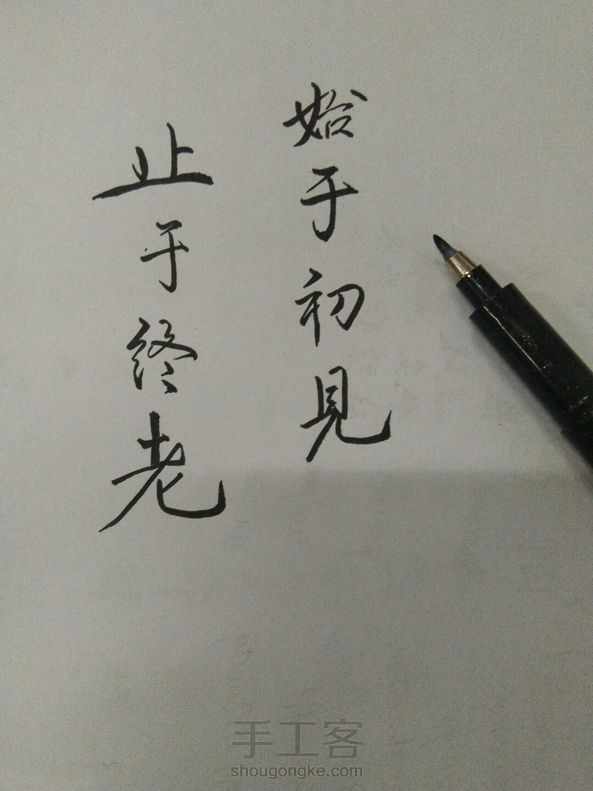 始于初見
止于终老
手工客
shougongke.com